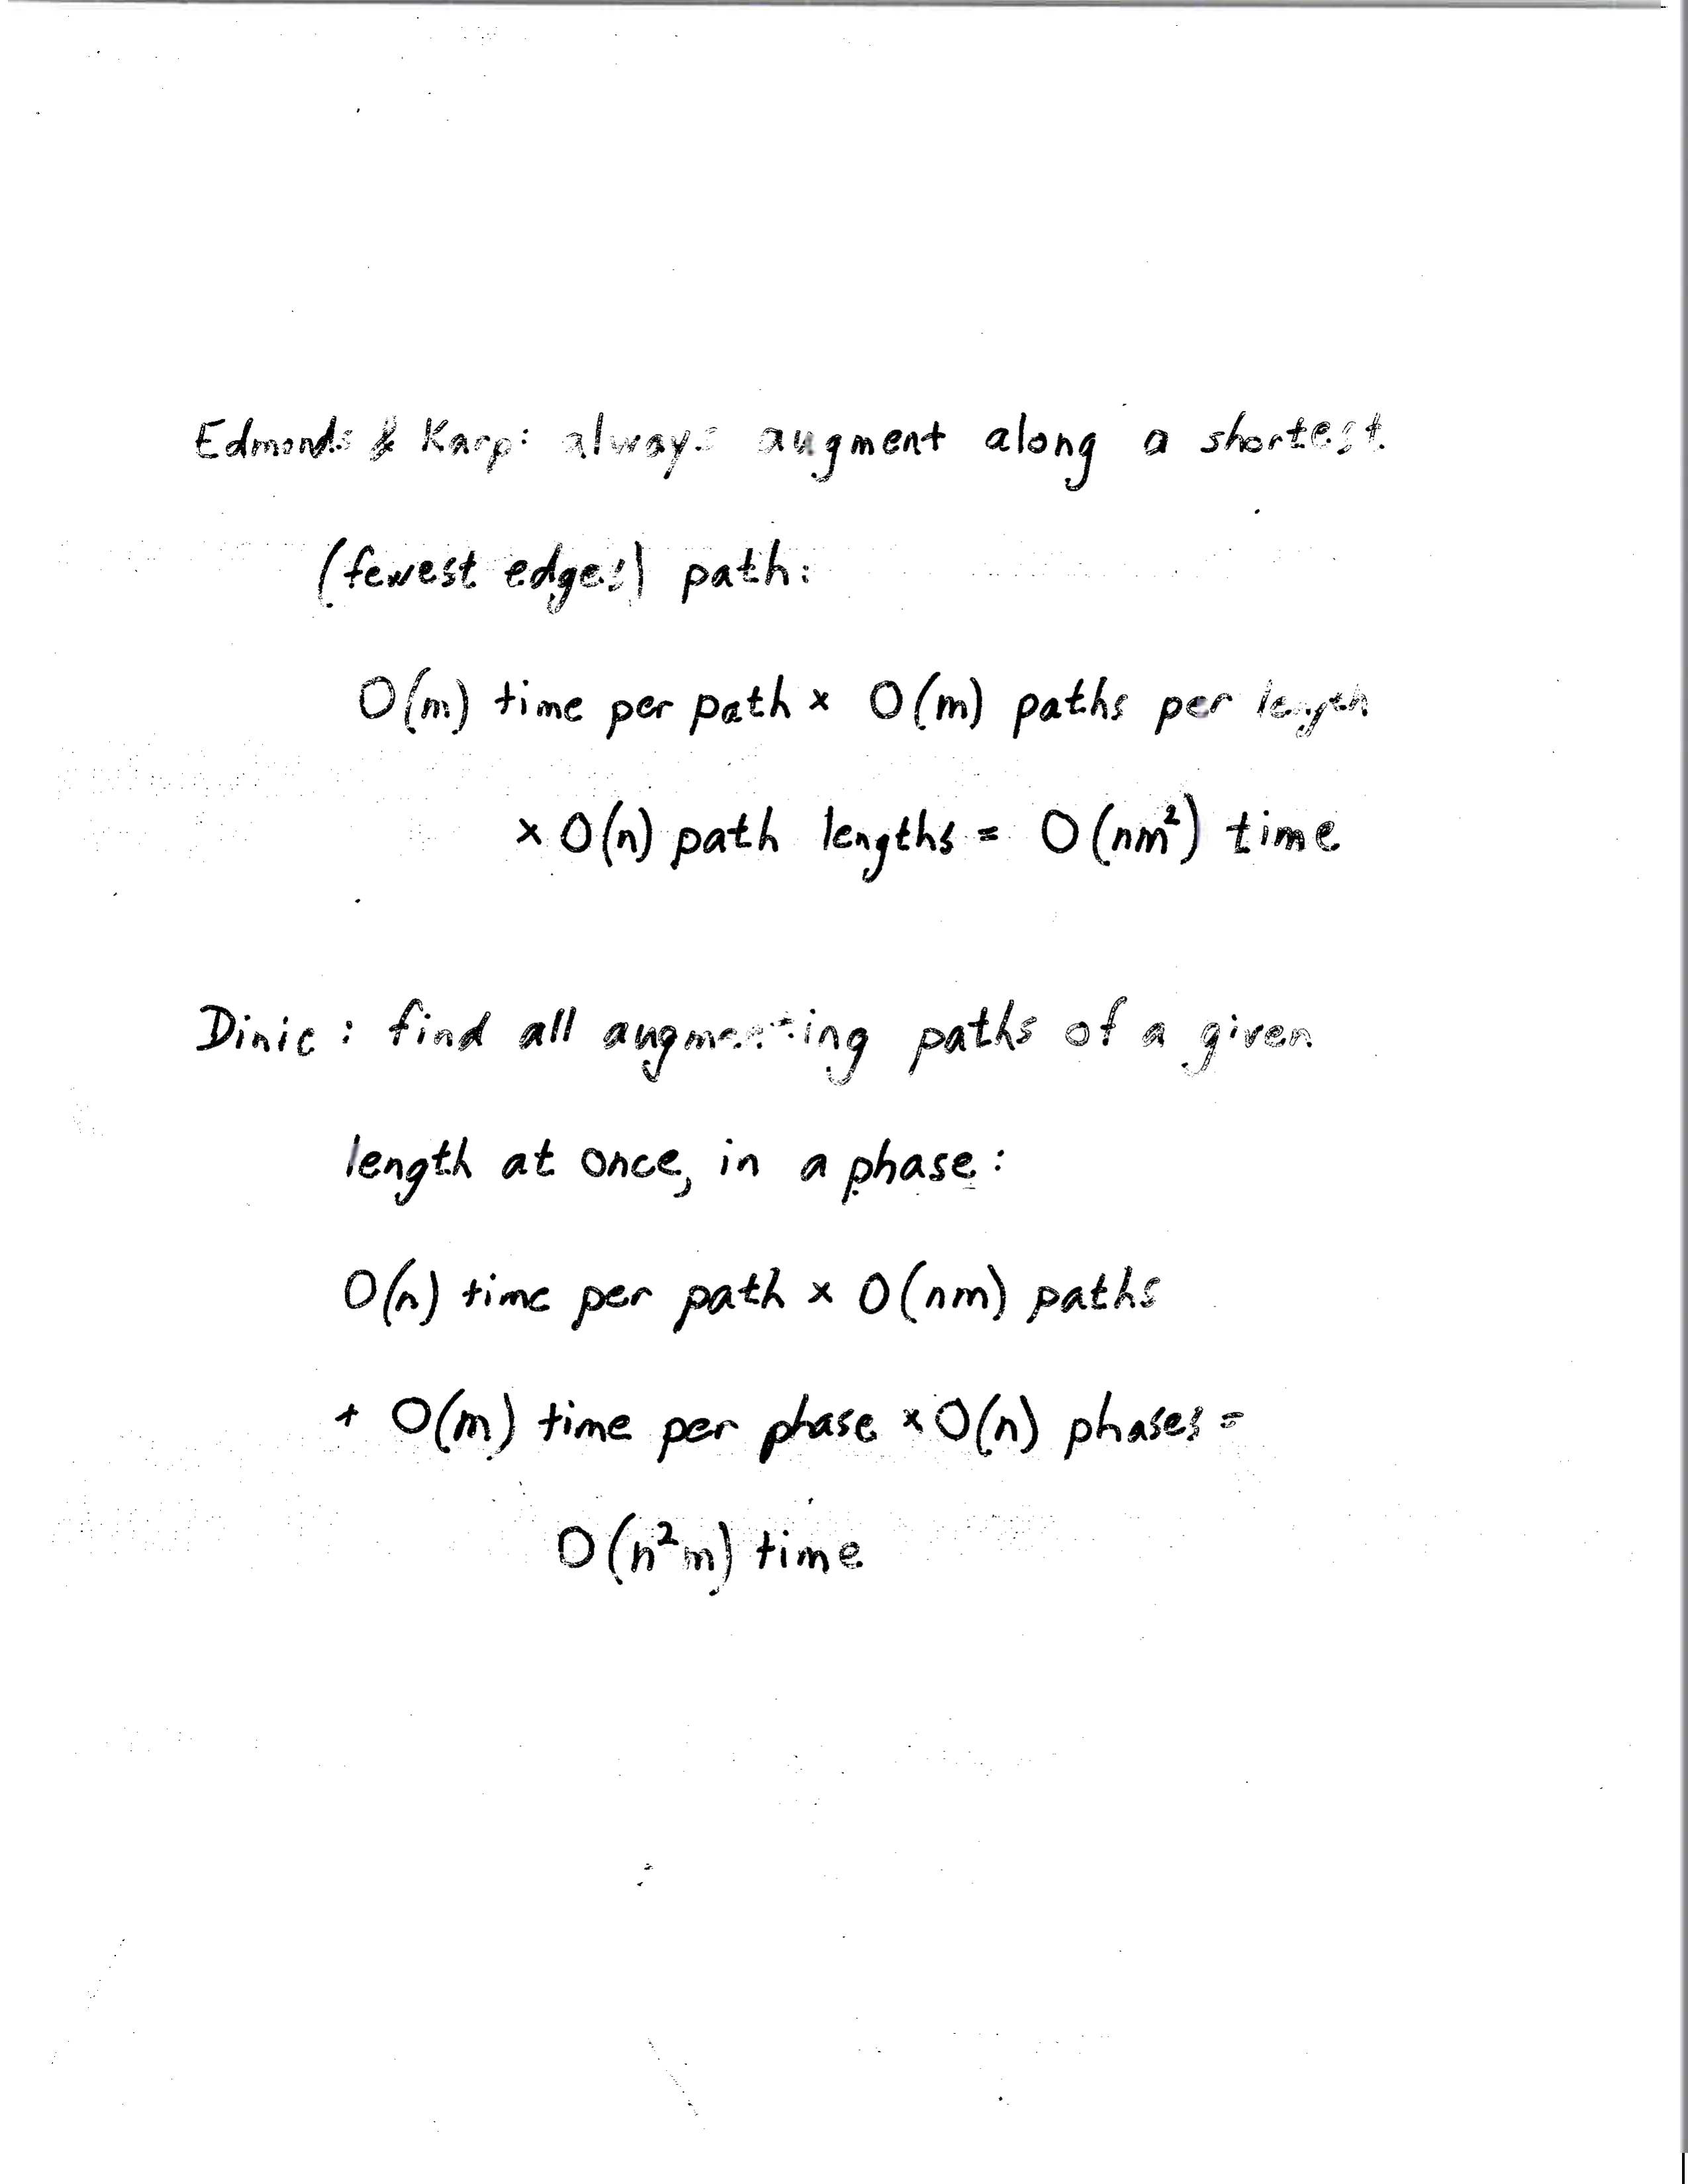 Edmonds & Karp: always augment along a shortest
(fewest edges) path:
O(m) time per path × O(m) paths per length
× O(n) path lengths = O(nm²) time
Dinic: find all augmenting paths of a given
length at once, in a phase:
O(n) time per path × O(nm) paths
+ O(m) time per phase × O(n) phases =
O(n²m) time